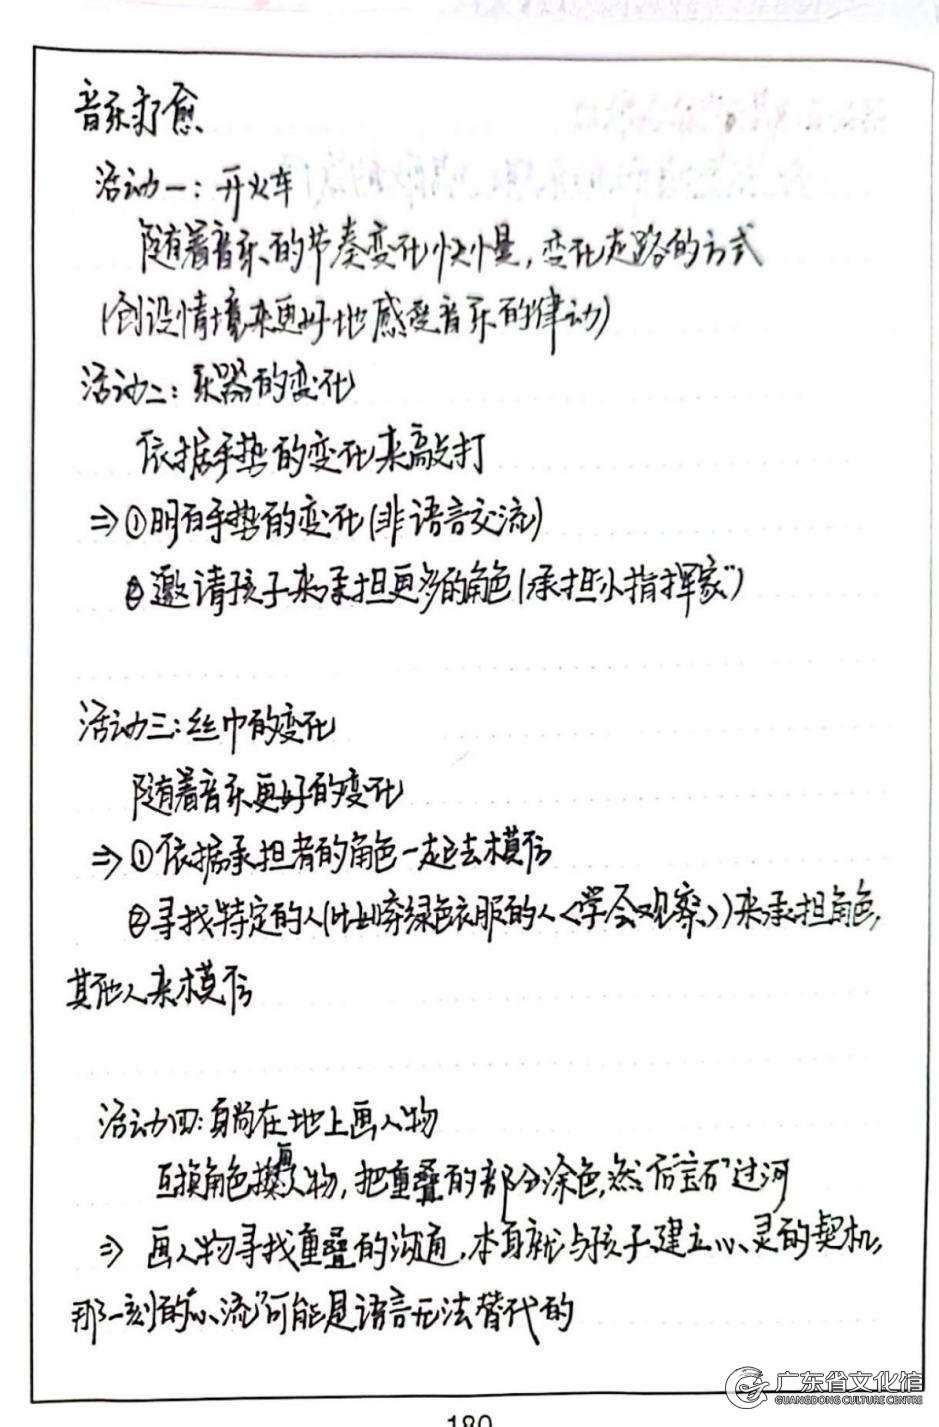 音乐疗愈
活动一：开火车
随着音乐的节奏变化快慢，变化走路的方式
(创设情境来更好地感受音乐的律动)
活动二：乐器的变化
依据手势的变化来敲打
⇒①明白手势的变化(非语言交流)
②邀请孩子来承担更多的角色(承担"小指挥家")
活动三：丝巾的变化
随着音乐更好的变化
⇒①依据承担者的角色一起去模仿
②寻找特定的人(比如穿绿色衣服的人<学会观察>)来承担角色，
其他人来模仿
活动四：躺在地上画人物
互换角色画人物，把重叠的部分涂色，然后"宝石"过河
⇒画人物寻找重叠的沟通，本身就与孩子建立心灵的契机，
那一刻的"心流"可能是语言无法替代的
广东省文化馆
GUANGDONG CULTURE CENTRE
180